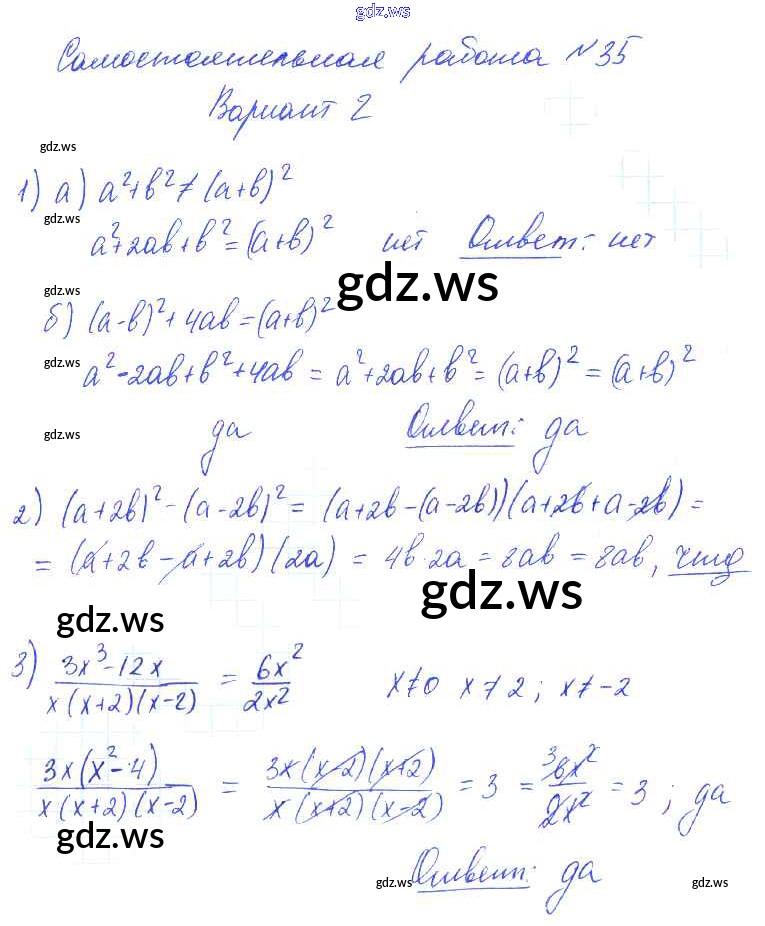 gdz.ws
Самостоятельная работа №35
Вариант 2
gdz.ws
1) а) a²+b² ≠ (a+b)²
gdz.ws
a²+2ab+b² = (a+b)² нет Ответ: нет
gdz.ws
gdz.ws
б) (a-b)²+4ab = (a+b)²
gdz.ws
a²-2ab+b²+4ab = a²+2ab+b² = (a+b)² = (a+b)²
gdz.ws
да Ответ: да
2) (a+2b)²-(a-2b)² = (a+2b-(a-2b))(a+2b+a-2b) =
= (a+2b-a+2b)(2a) = 4b·2a = 8ab = 8ab, чтд
gdz.ws
gdz.ws
3) (3x³-12x)/(x(x+2)(x-2)) = 6x²/2x² x≠0 x≠2; x≠-2
(3x(x²-4))/(x(x+2)(x-2)) = (3x(x-2)(x+2))/(x(x+2)(x-2)) = 3 = ³6x²/2x² = 3; да
gdz.ws
Ответ: да
gdz.ws
gdz.ws